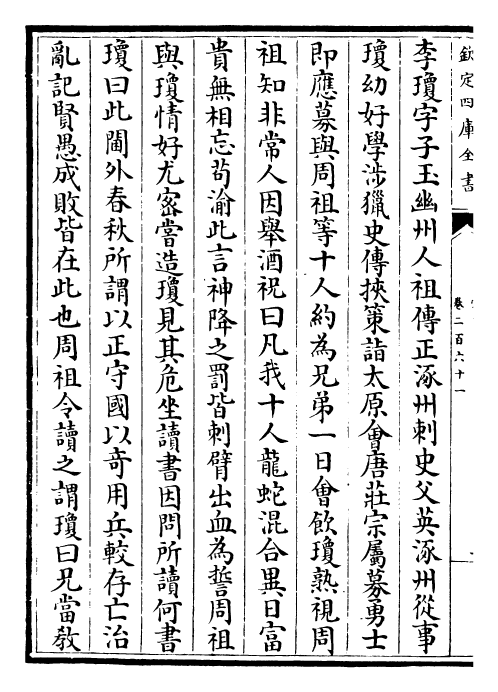 欽定四庫全書
卷二百六十一
李瓊字子玉幽州人祖傳正涿州刺史父英涿州從事
瓊幼好學涉獵史傳挾策詣太原會唐莊宗屬募勇士
即應募與周祖等十人約為兄弟一日會飲瓊熟視周
祖知非常人因舉酒祝曰凡我十人龍蛇混合異日富
貴無相忘苟渝此言神降之罰皆刺臂出血為誓周祖
與瓊情好尤密嘗造瓊見其危坐讀書因問所讀何書
瓊曰此閫外春秋所謂以正守國以奇用兵較存亡治
亂記賢愚成敗皆在此也周祖令讀之謂瓊曰兄當教